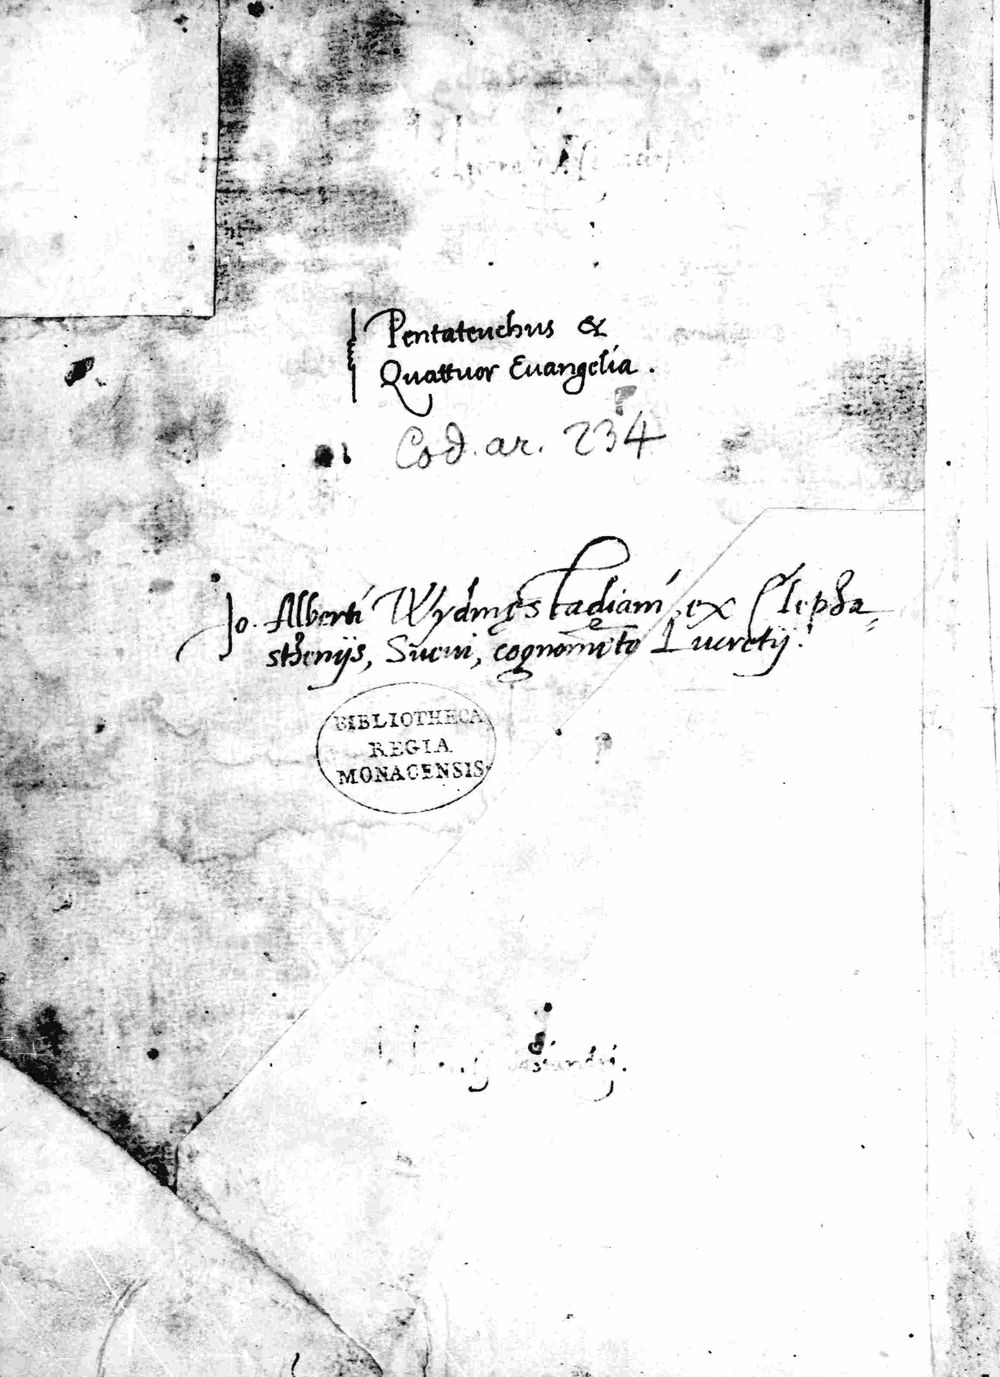 Pentateuchus &
Quattuor Euangelia.
Cod. ar. 234
Jo. Alberti Wydmęstadiani ex
sthenijs, Sueui, cognomēto Lucretij.
BIBLIOTHECA
REGIA
MONACENSIS